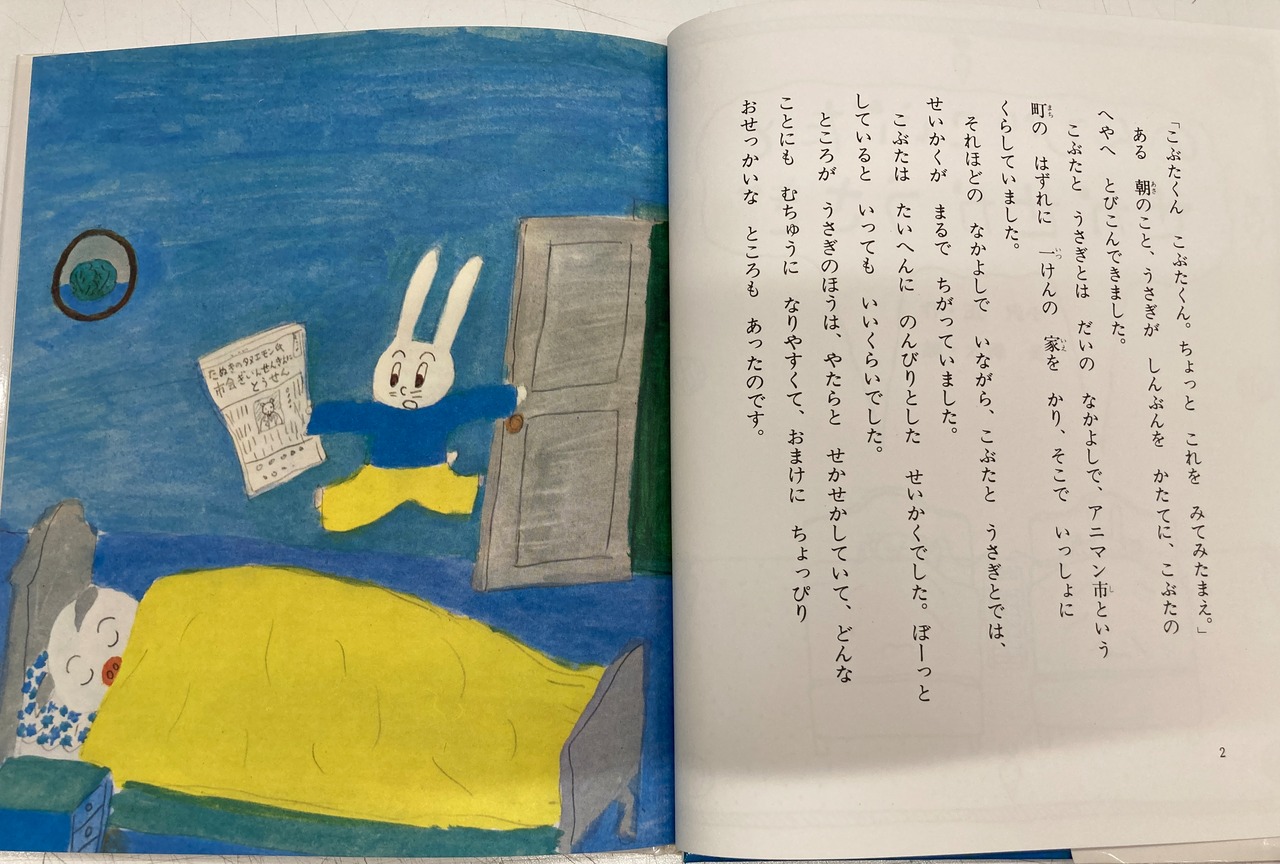 「こぶたくん　こぶたくん。ちょっと　これを　みてみたまえ。」
ある　朝のこと、うさぎが　しんぶんを　かたてに、こぶたの
へやへ　とびこんできました。
こぶたと　うさぎとは　だいの　なかよしで、アニマン市という
町の　はずれに　一けんの　家を　かり、そこで　いっしょに
くらしていました。
それほどの　なかよしで　いながら、こぶたと　うさぎとでは、
せいかくが　まるで　ちがっていました。
こぶたは　たいへんに　のんびりとした　せいかくでした。ぼーっと
していると　いっても　いいくらいでした。
ところが　うさぎのほうは、やたらと　せかせかしていて、どんな
ことにも　むちゅうに　なりやすくて、おまけに　ちょっぴり
おせっかいな　ところも　あったのです。
2
たぬきのタヌエモン氏
市会ぎいんせんきょに
とうせん